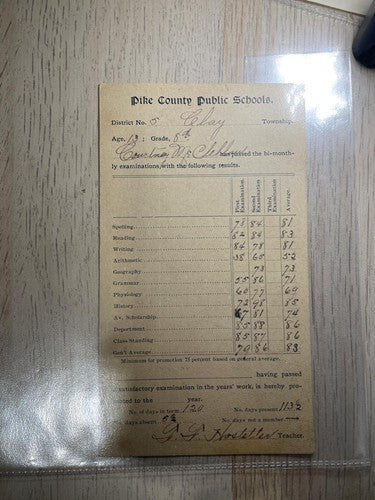 Pike County Public Schools.
District No. 5 Clay Township.
Age, 13; Grade, 8th
Courtney has passed the bi-month-
ly examinations, with the following results.
First Examination Second Examination Third Examination Average.
Spelling 78 84 81
Reading 82 84 83
Writing 84 78 81
Arithmetic 38 65 52
Geography 73 73
Grammar 55 86 71
Physiology 60 77 69
History 72 98 85
Av. Scholarship 67 81 74
Department 85 88 86
Class Standing 85 87 86
Gen'l Average 79 86 83
Minimum for promotion 75 per cent based on general average.
having passed
satisfactory examination in the years' work, is hereby pro-
moted to the year.
No. of days in term 120 No. days present 113½
No. days absent No. days not a member
G. G. Hostetter Teacher.